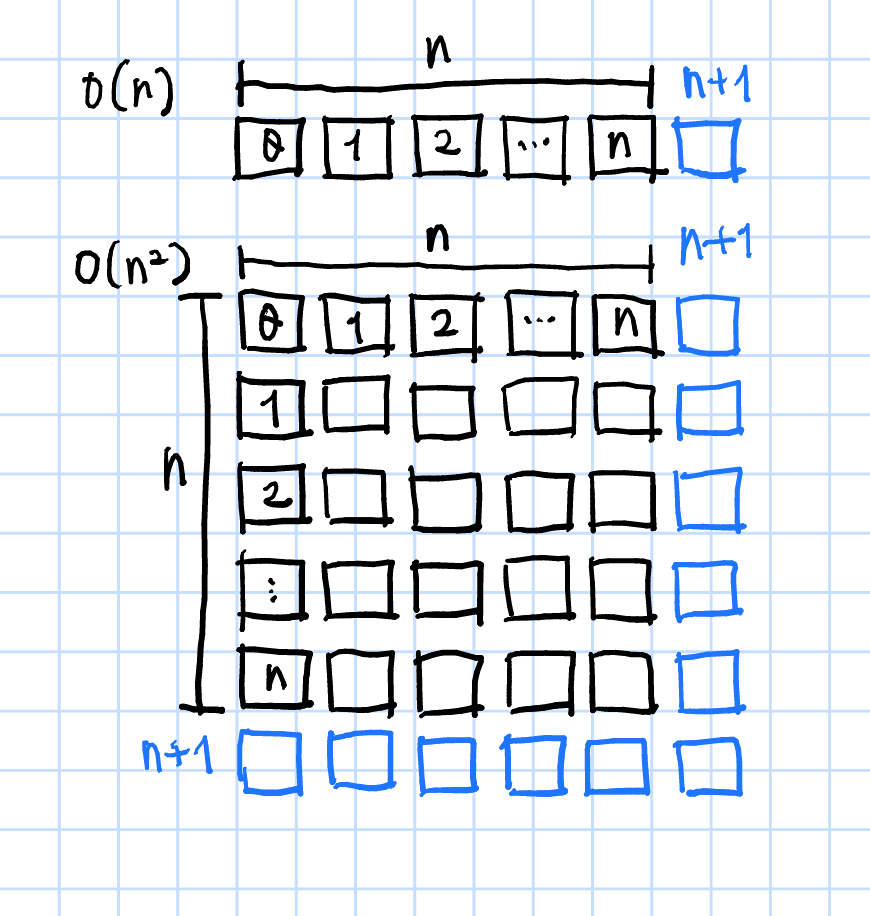 n
O(n) n+1
0 1 2 ... n
n
O(n²) n+1
0 1 2 ... n
1
n 2
⋮
n
n+1